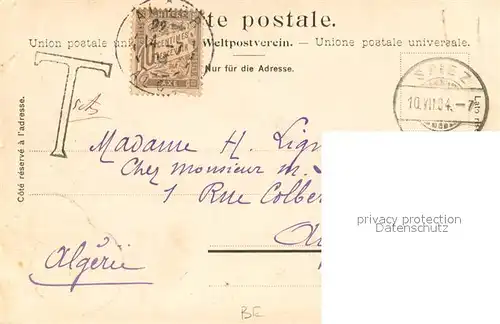 te postale.
Union postale uni Weltpostverein. — Unione postale universale.
Nur für die Adresse.
Côté réservé à l'adresse.
T
10
CENTIMES
SPIEZ
10.VII.04.-7
Madame H. Lign
Chez monsieur m.
1 Rue Colber
Algérie
privacy protection
Datenschutz
BE